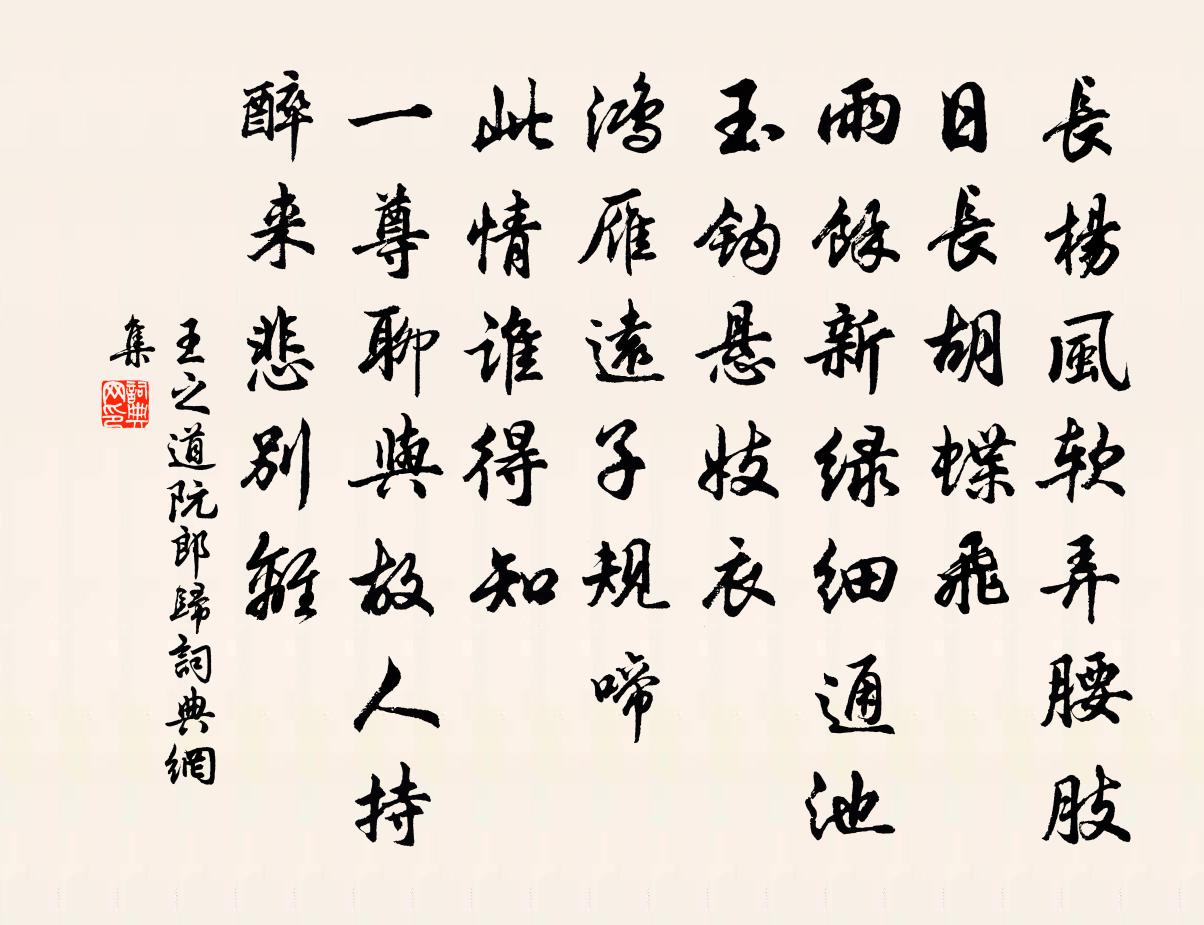 長楊風软弄腰肢
日長胡蝶飛
雨餘新緑细通池
玉钩悬妓衣
鸿雁遠子規啼
此情谁得知
一尊聊與故人持
醉来悲别離
王之道阮郎歸詞典網
集
詞典网印